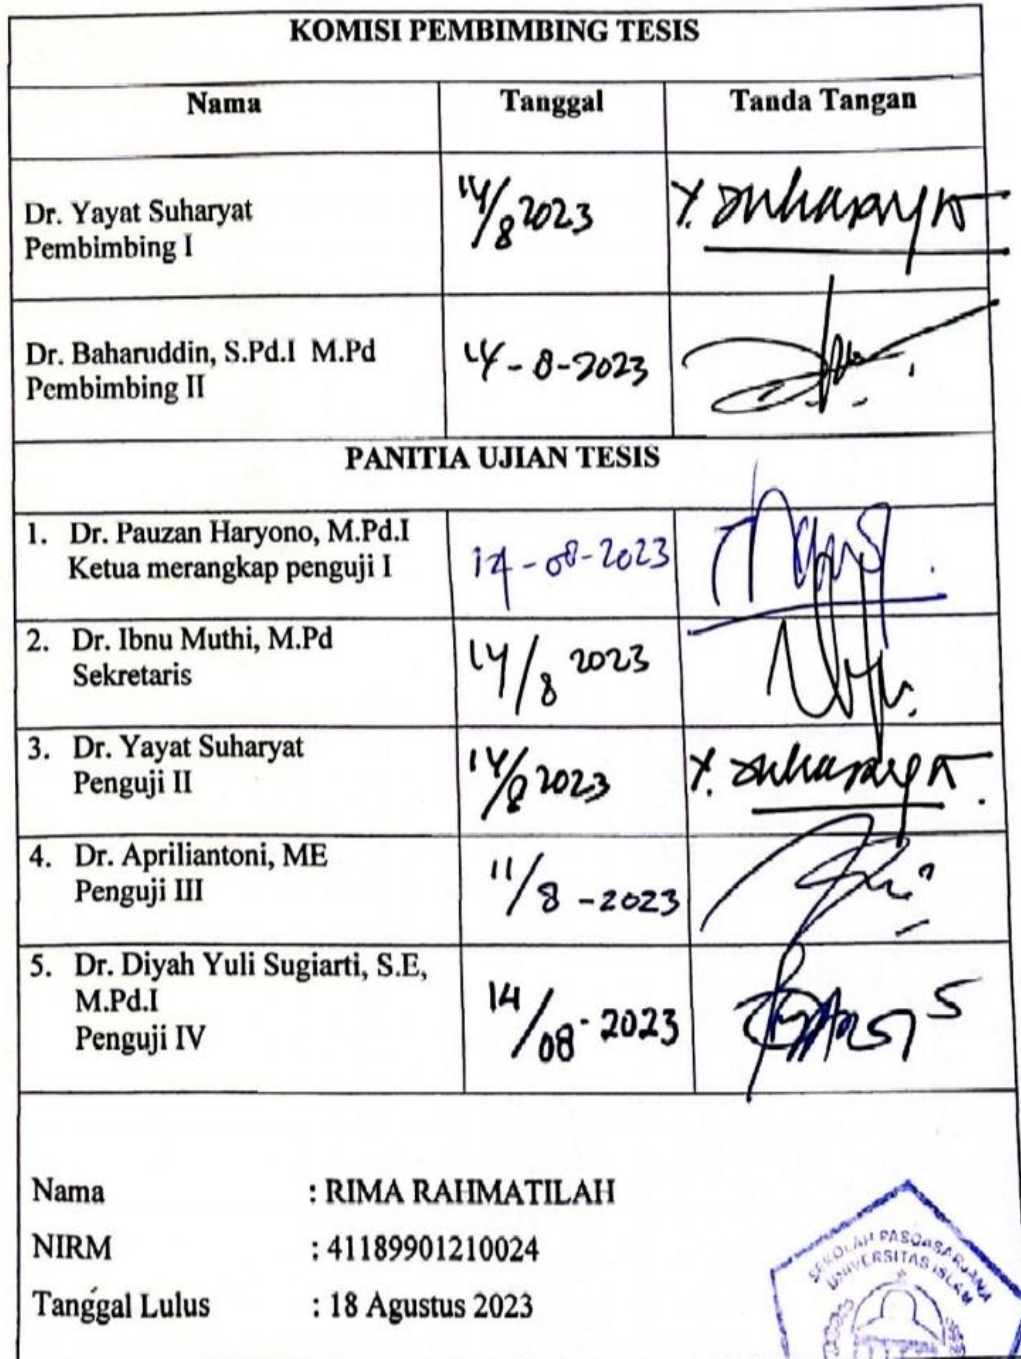 KOMISI PEMBIMBING TESIS
Nama Tanggal Tanda Tangan
Dr. Yayat Suharyat
Pembimbing I
14/8 2023
Y. Suharyat
Dr. Baharuddin, S.Pd.I M.Pd
Pembimbing II
14-8-2023
PANITIA UJIAN TESIS
1. Dr. Pauzan Haryono, M.Pd.I
Ketua merangkap penguji I
14-08-2023
2. Dr. Ibnu Muthi, M.Pd
Sekretaris
14/8 2023
3. Dr. Yayat Suharyat
Penguji II
14/8 2023
Y. Suharyat
4. Dr. Apriliantoni, ME
Penguji III
11/8-2023
5. Dr. Diyah Yuli Sugiarti, S.E,
M.Pd.I
Penguji IV
14/08-2023
Nama : RIMA RAHMATILAH
NIRM : 41189901210024
Tanggal Lulus : 18 Agustus 2023
SEKOLAH PASCASARJANA
UNIVERSITAS ISLAM